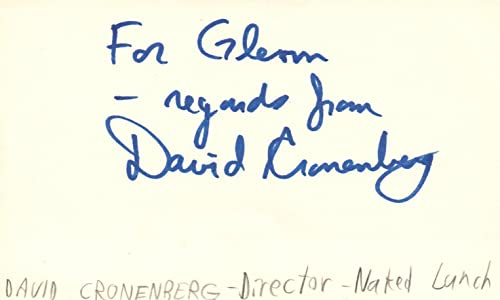 For Glenn
- regards from
David Cronenberg
DAVID CRONENBERG - Director - Naked Lunch